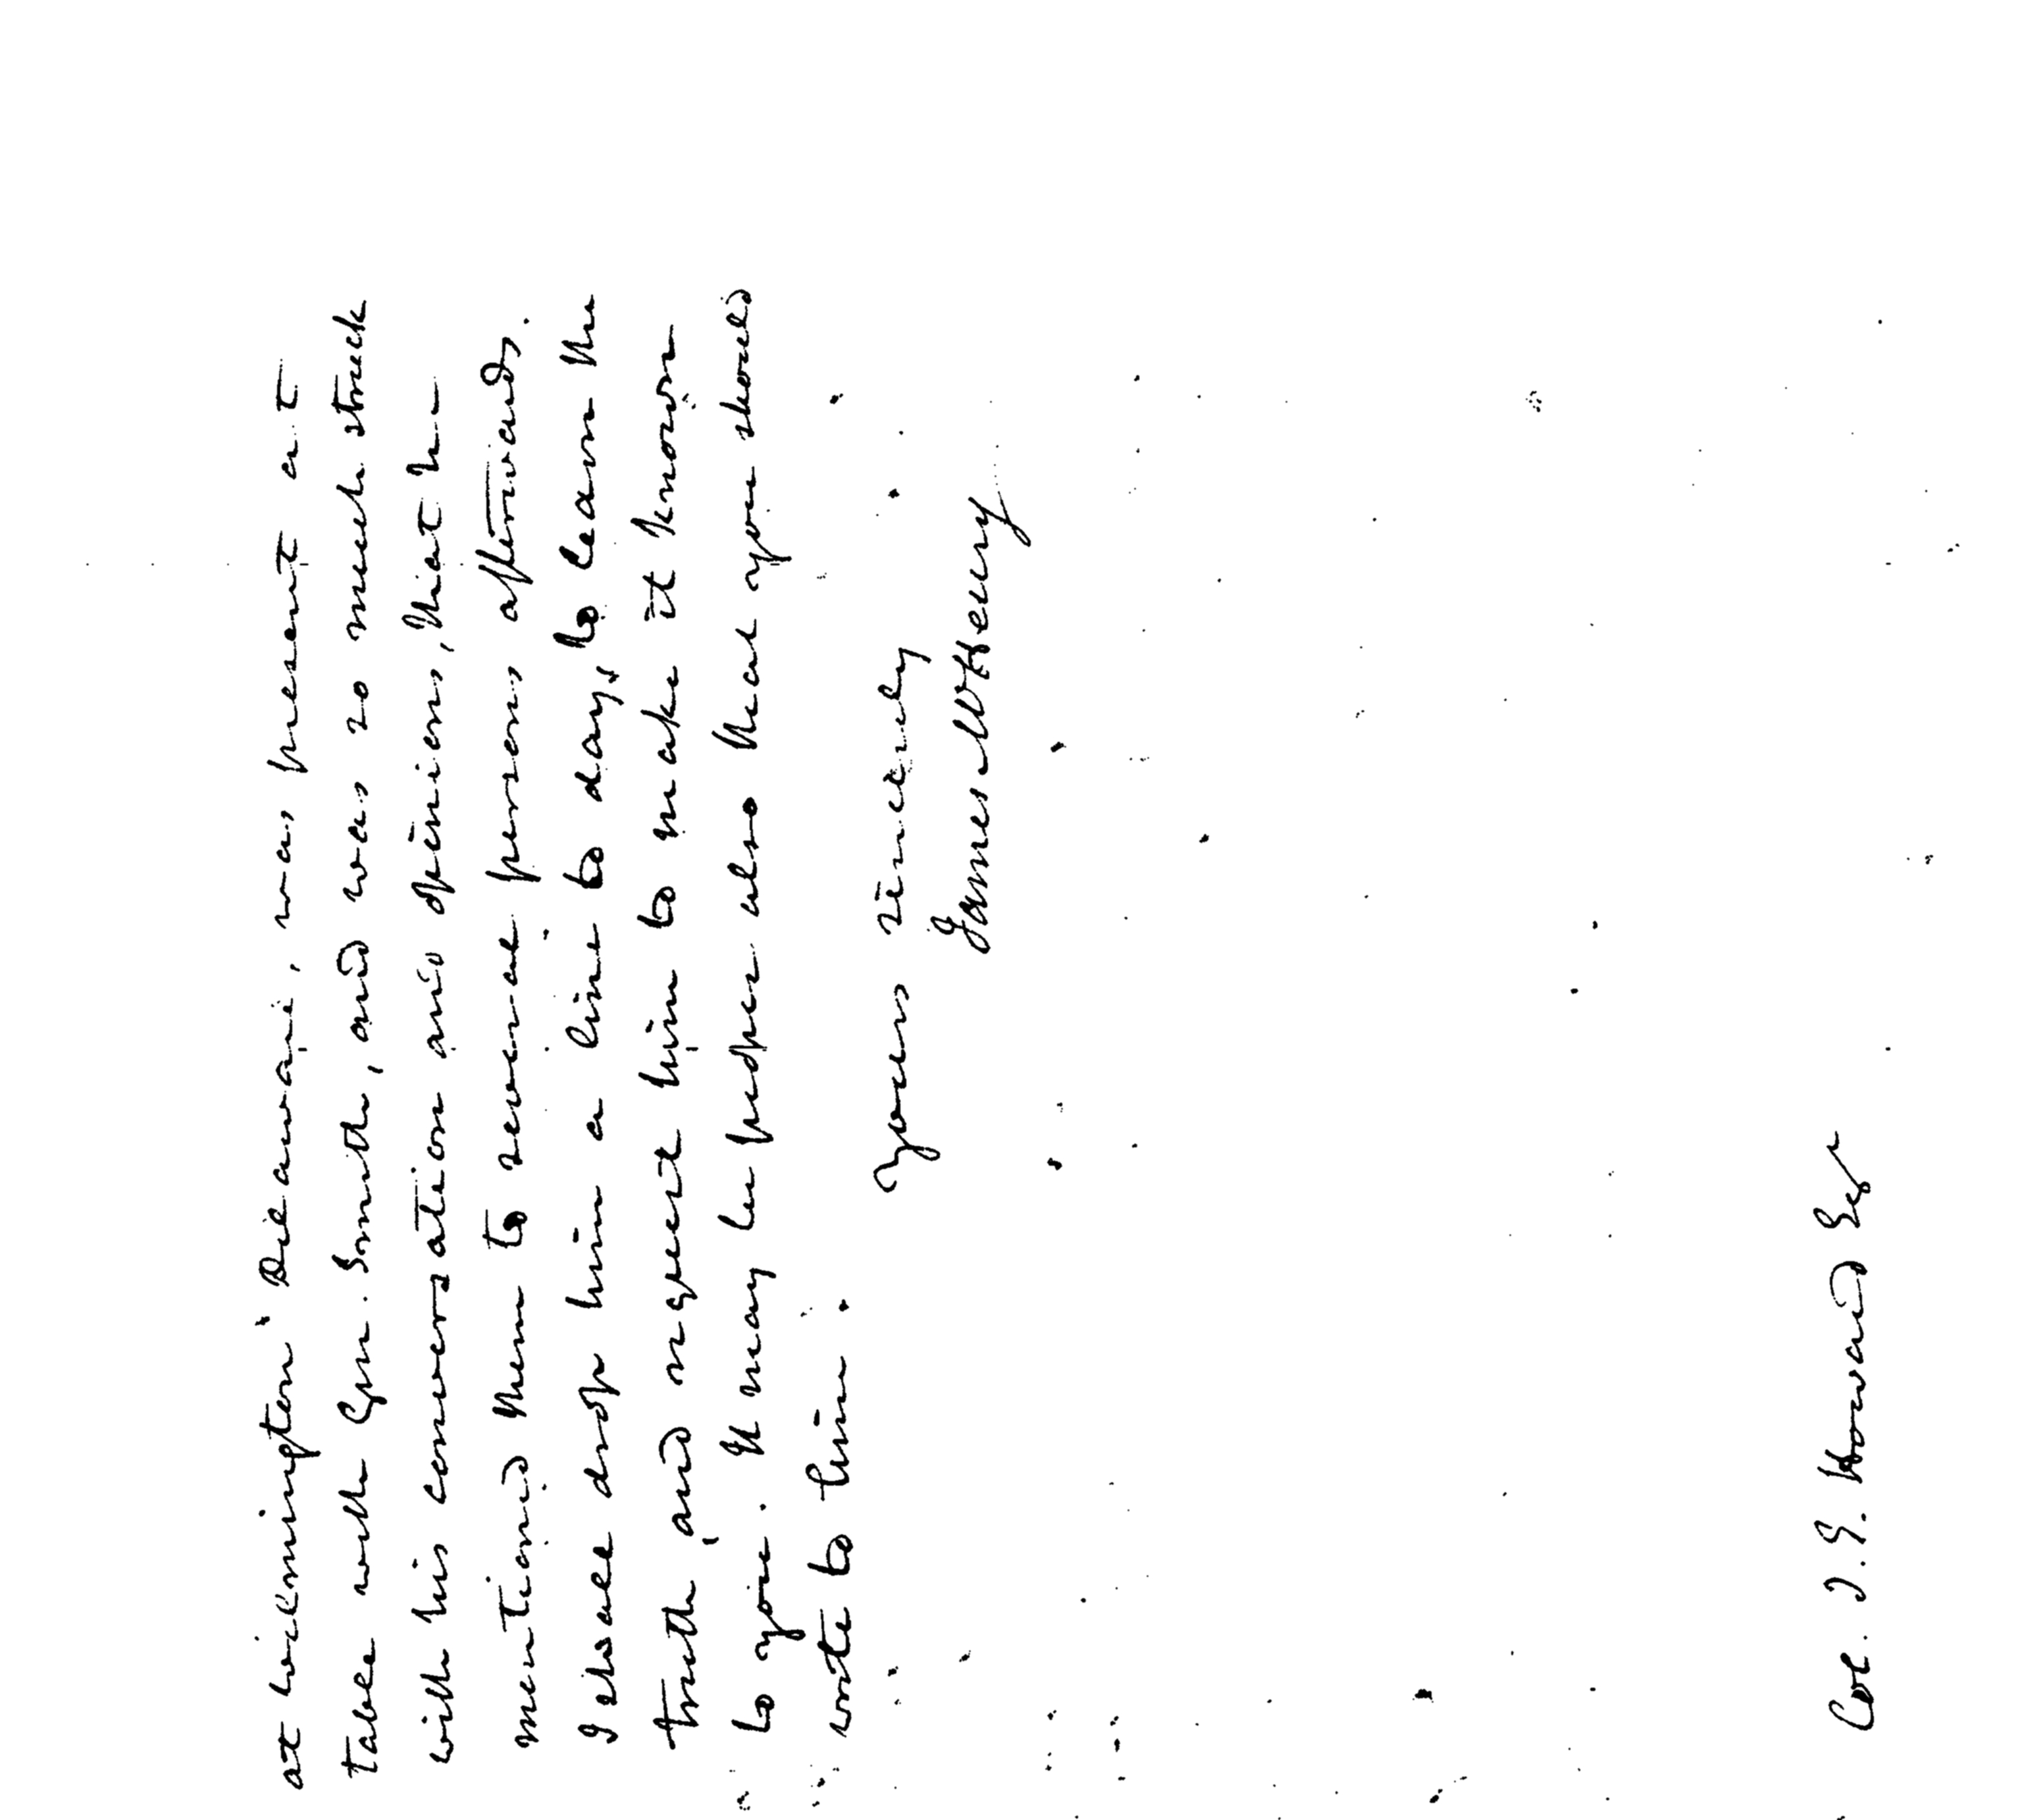 at Wilmington Delaware, was present at
table with Gen. Smith, and was so much struck
with his conversation and opinions, that he
mentioned them to several persons afterwards.
I shall drop him a line to day, to learn the
truth and request him to make it known
to you. It may be proper also that you should
write to him.
Yours sincerely
James McHenry
Col. J. E. Howard Esqr